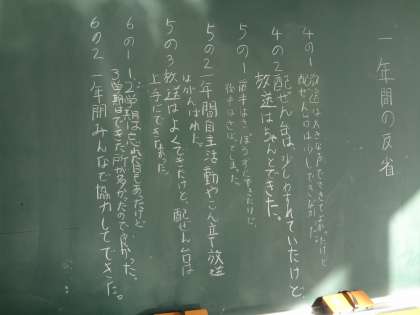 一年間の反省
4の1 放送は大きな声でできてよかったけど
配ぜん台は少しできなかった。
4の2 配ぜん台は少しわすれていたけど
放送はちゃんとできた。
5の1 前半はさぼらずにできたけど、
後半はさぼってしまった。
5の2 一年間自主活動やこん立放送
はがんばれた。
5の3 放送はよくできたけど、配ぜん台は
上手にできなかった。
6の1 1、2学期は忘れた日もあったけど
3学期はできた所が多かったので良かった。
6の2 一年間みんなで協力してできた。